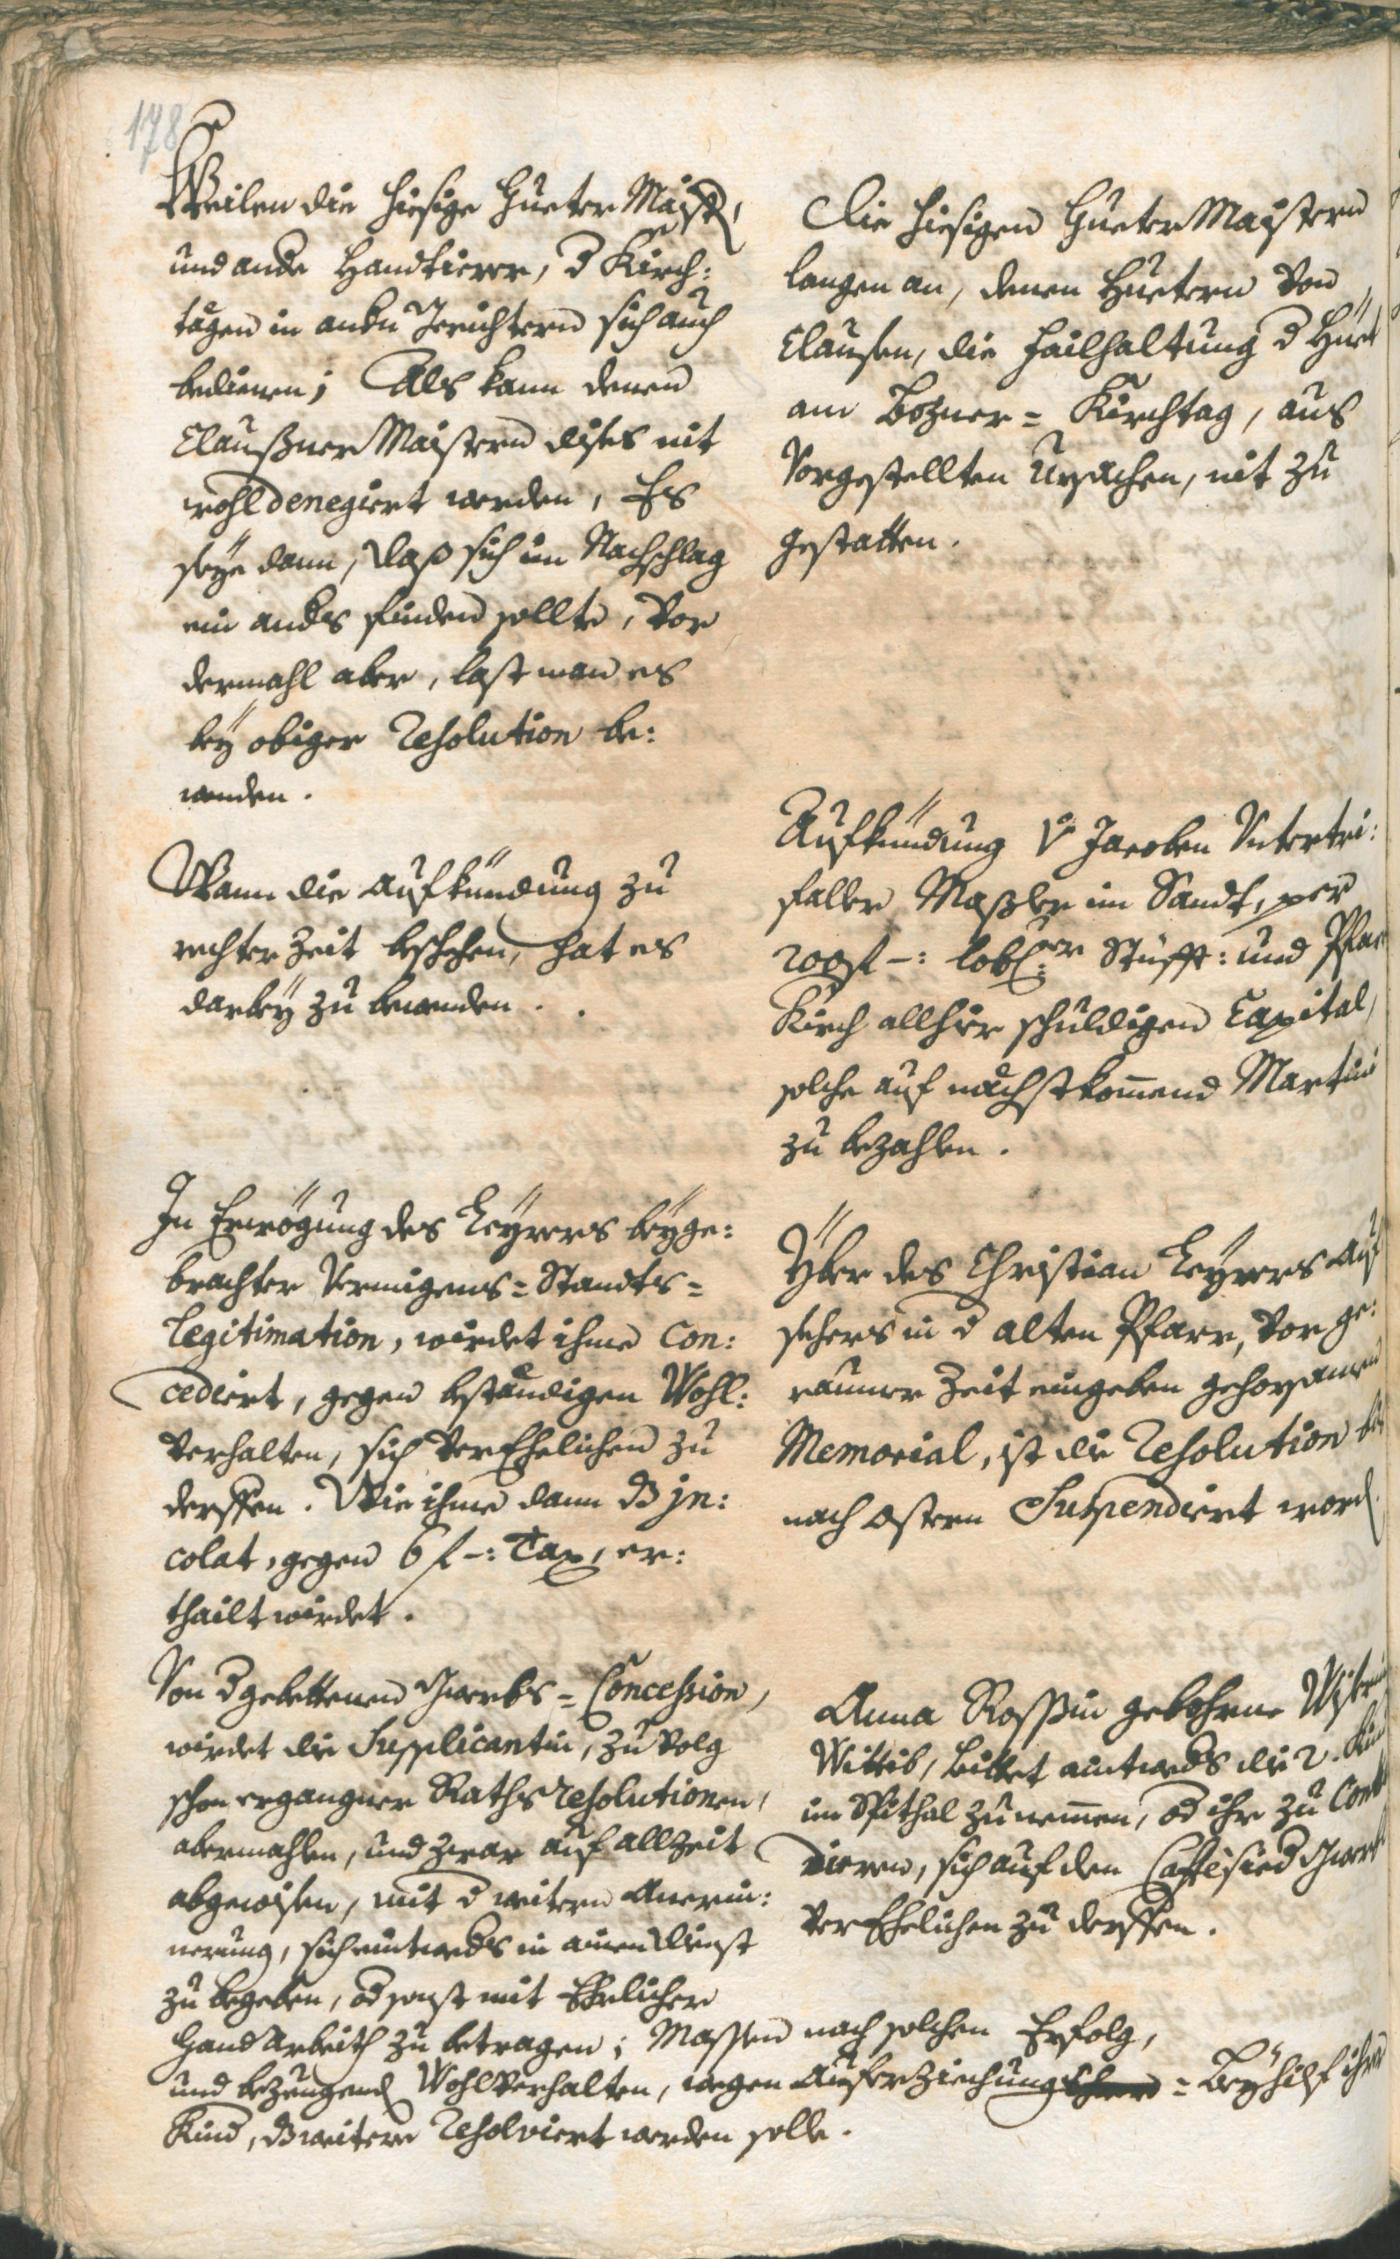 178
Weilen die hiesige Hueter Maist:
und ande Handtierer, d Kirch:
tägen in andn Gerichtern sich auch
bedienen; Als kann denen
Claußner Maistern dises nit
wohl denegiert werden, Es
seye dann, dass sich im Nachschlag
ein anders finden sollte, Vor
dermahl aber, last man es
bey obiger Resolution be:
wenden.
Die hiesigen Hueter Maistern
langen an, denen Huetern von
Clausen, die failhaltung d Huet
am Bozner= Kirchtag, aus
Vorgestellten Ursachen, nit zu
gestatten.
Wann die aufkündung zu
rechter Zeit beschehen, hat es
darbey zu bewenden.
Aufkündung v Jacoben Untertri:
faller Mazler im Sandt, per
200 fl -: lobl: Stüfft: und Pfar
Kirch allhier schuldigen Capital,
solche auf nächstkomend Martini
zu bezahlen.
In Erwögung des Leyrers beyge:
brachter Vermigens= Standts=
Legitimation, wirdet ihme con:
cediert, gegen beständigen Wohl:
verhalten, sich verEhelichen zu
derffen. Wie ihme dann ds jn:
colat, gegen 6 f -: Tax, er:
thailt wirdet.
Yber des Christian Leyrers auf
sehers in d alten Pfarr, vor ge:
raumer Zeit eingeben gehorsamen
Memorial, ist die Resolution bis
nach ostern Suspendiert word.
Von d gebettenen Gwerbs= Concession,
wirdet die Supplicantin, zu volg
schon ergangner Raths resolutionen,
abermahlen, und zwar auf allzeit
abgewisen, mit d weitern Anerin:
nerung, sich eintweds in ainen Dienst
zu begeben, od sonst mit Ehrlicher
Hand Arbeith zu betragen; Massen nach solchen Erfolg,
und bezeugend Wohlverhalten, wegen Auferziechungs = Beyhilf ihrer
Kind, ds weitere Resolviert werden solle.
Anna Rossin gebohrne
Wittib, bittet aintweds die 2. Kind
im Spithal zu nemmen, od ihr zu Con
dieren, sich auf den Caffèsied Gwerb
verEhelichen zu derffen.